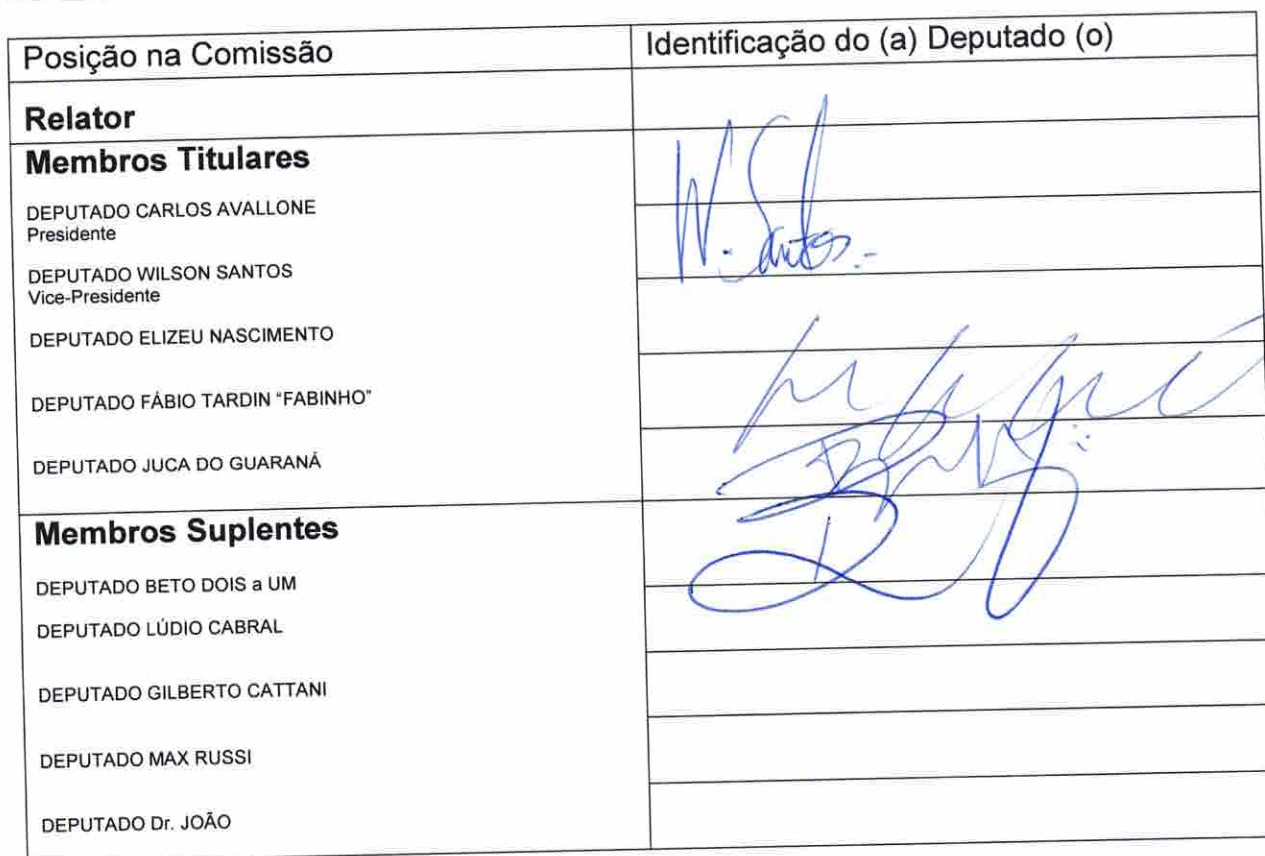 Posição na Comissão
Identificação do (a) Deputado (o)
Relator
Membros Titulares
DEPUTADO CARLOS AVALLONE
Presidente
DEPUTADO WILSON SANTOS
Vice-Presidente
W. Santos.-
DEPUTADO ELIZEU NASCIMENTO
DEPUTADO FÁBIO TARDIN “FABINHO”
DEPUTADO JUCA DO GUARANÁ
Membros Suplentes
DEPUTADO BETO DOIS a UM
DEPUTADO LÚDIO CABRAL
DEPUTADO GILBERTO CATTANI
DEPUTADO MAX RUSSI
DEPUTADO Dr. JOÃO